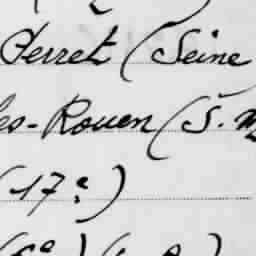 Perret (Seine
es-Rouen (S.
(17e)